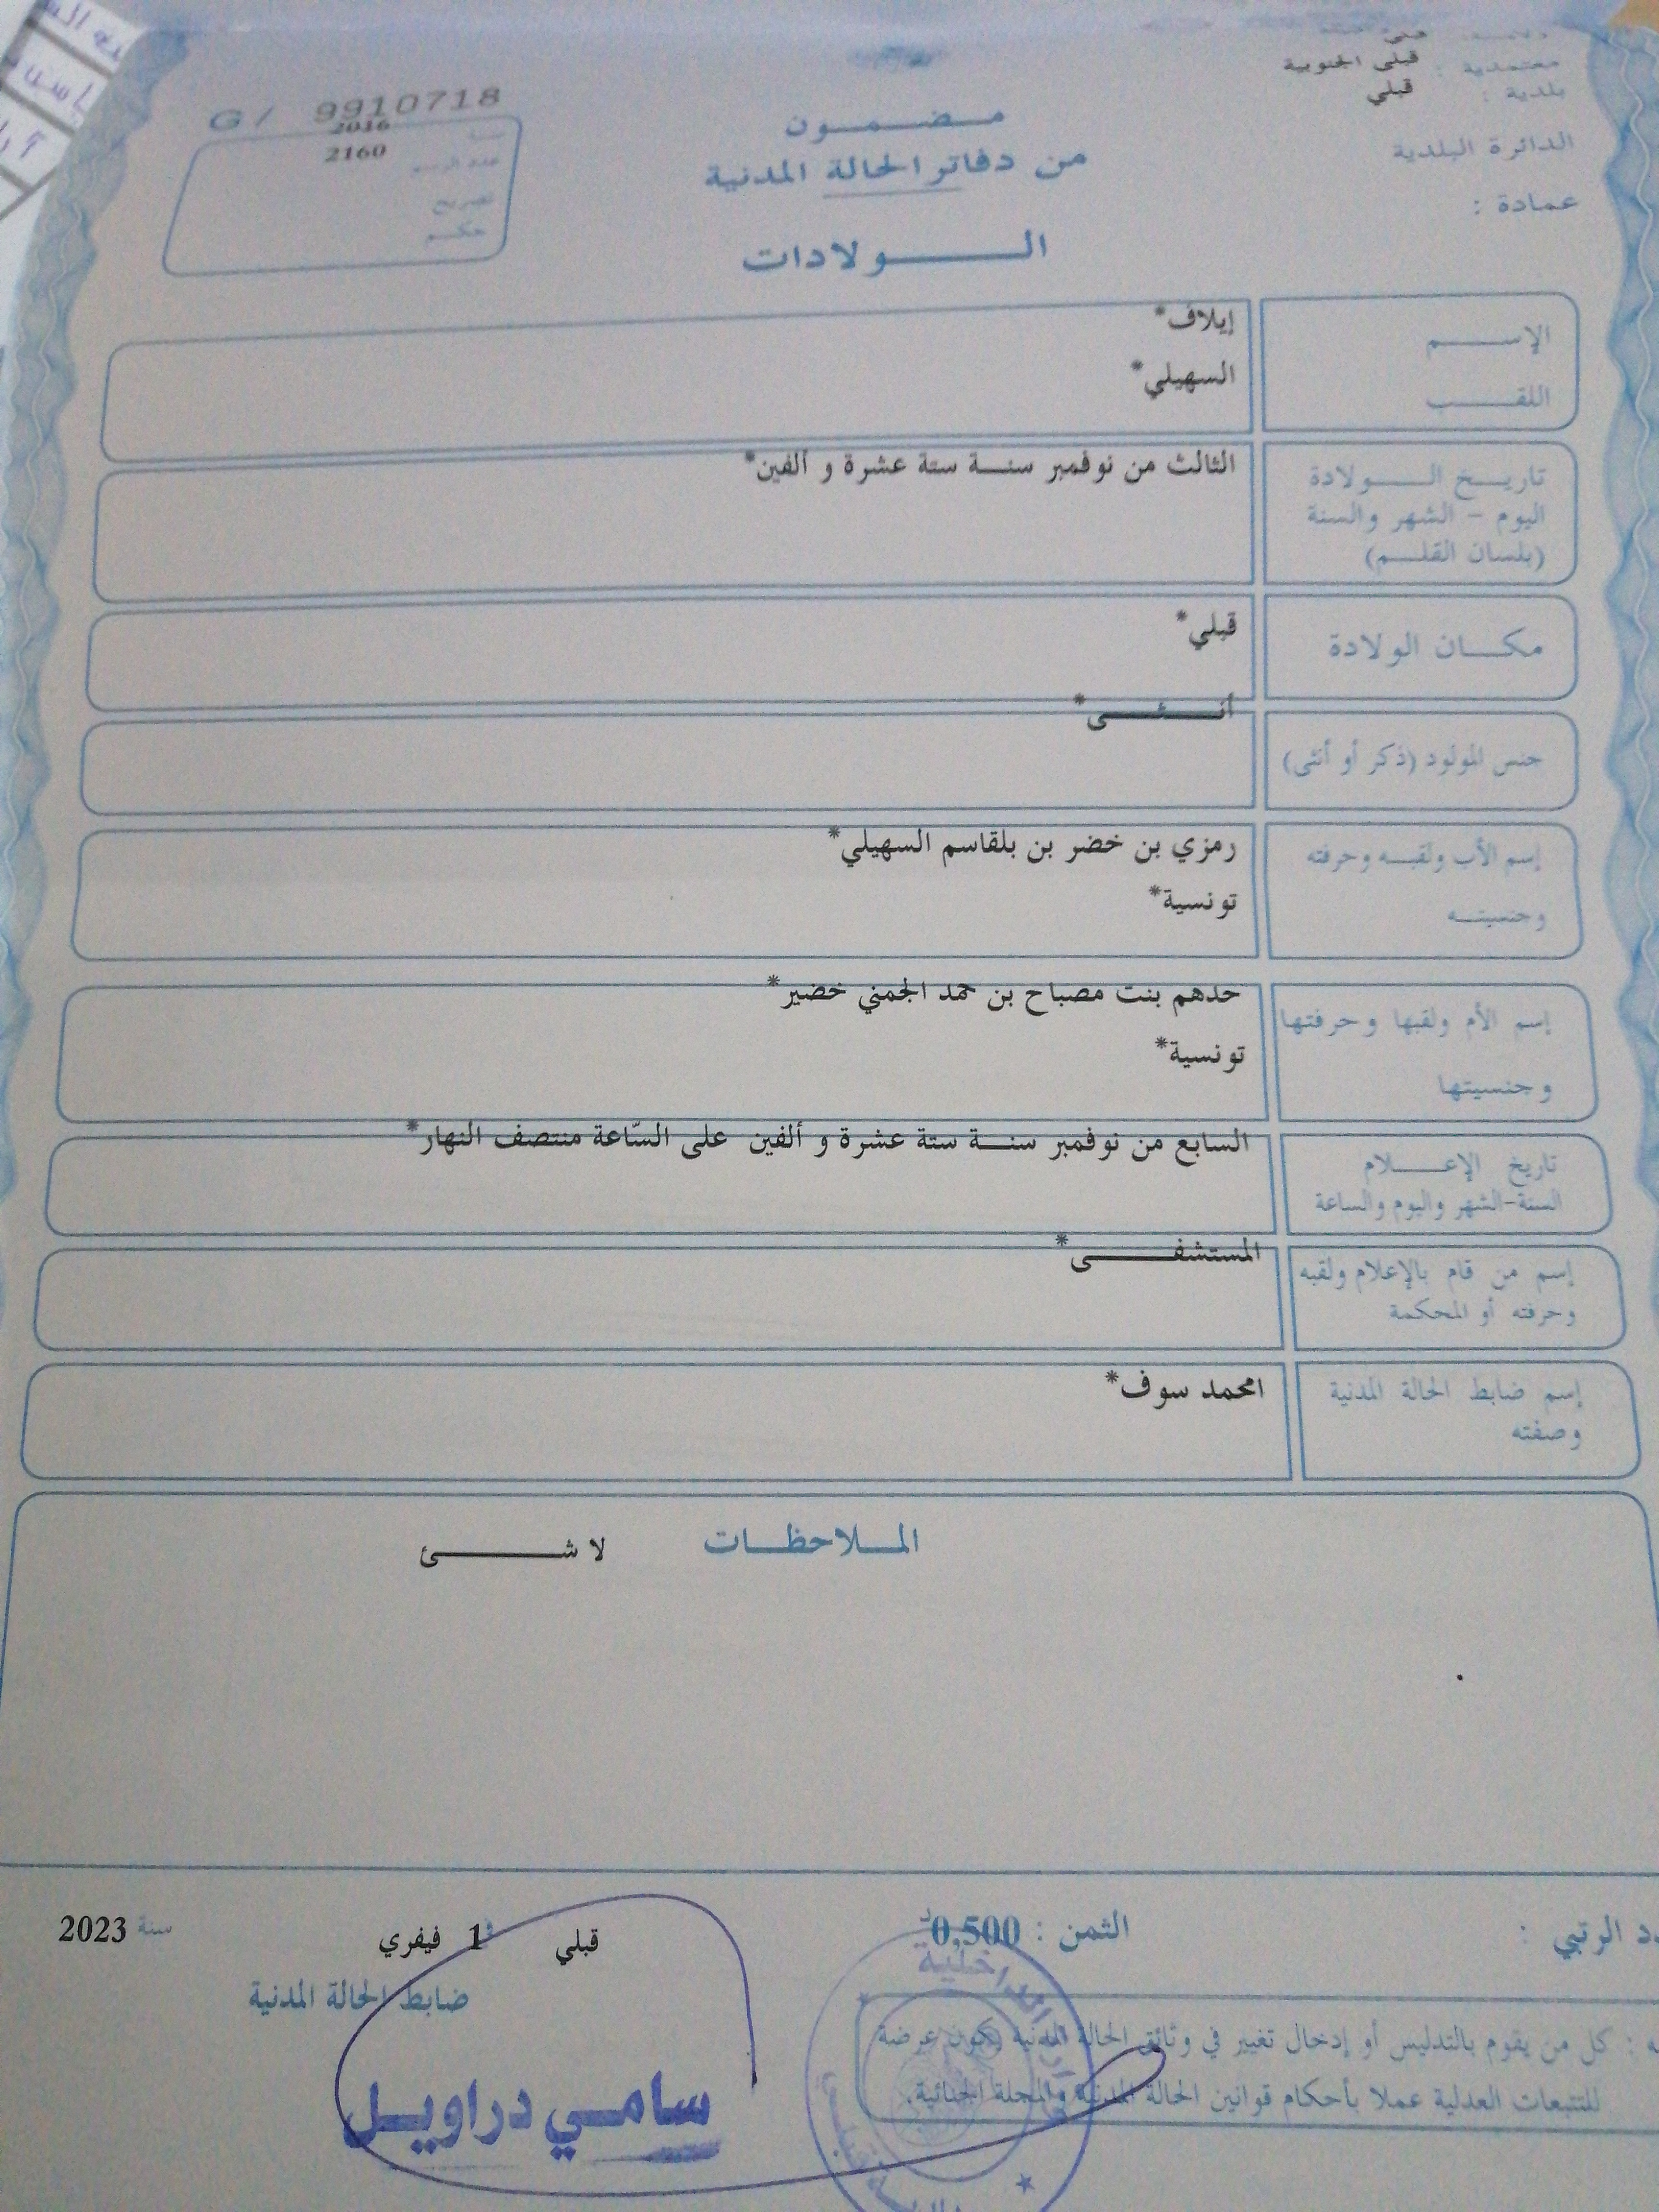 ولاية : قبلي
معتمدية : قبلي الجنوبية
بلدية : قبلي
الدائرة البلدية
عمادة :
مـضـمـون
من دفاتر الحالة المدنية
الـولادات
G / 9910718
سنة 2016
عدد الرسم 2160
تصريح
حكم
الإسم إيلاف*
اللقب السهيلي*
تاريخ الولادة الثالث من نوفمبر سنة ستة عشرة و ألفين*
اليوم - الشهر والسنة
(بلسان القلم)
مكان الولادة قبلي*
جنس المولود (ذكر أو أنثى) أنثى*
إسم الأب ولقبه وحرفته رمزي بن خضر بن بلقاسم السهيلي*
وجنسيته تونسية*
إسم الأم ولقبها وحرفتها حدهم بنت مصباح بن حمد الجمني خضير*
وجنسيتها تونسية*
تاريخ الإعلام السابع من نوفمبر سنة ستة عشرة و ألفين على السّاعة منتصف النهار*
السنة-الشهر واليوم والساعة
إسم من قام بالإعلام ولقبه المستشفى*
وحرفته أو المحكمة
إسم ضابط الحالة المدنية امحمد سوف*
وصفته
الملاحظات لا شئ
الرتبي :
الثمن : 0,500د
قبلي في 1 فيفري سنة 2023
ضابط الحالة المدنية
كل من يقوم بالتدليس أو إدخال تغيير في وثائق الحالة المدنية يكون عرضة
للتتبعات العدلية عملا بأحكام قوانين الحالة المدنية والمجلة الجنائية.
سامي دراويل
الداخلية